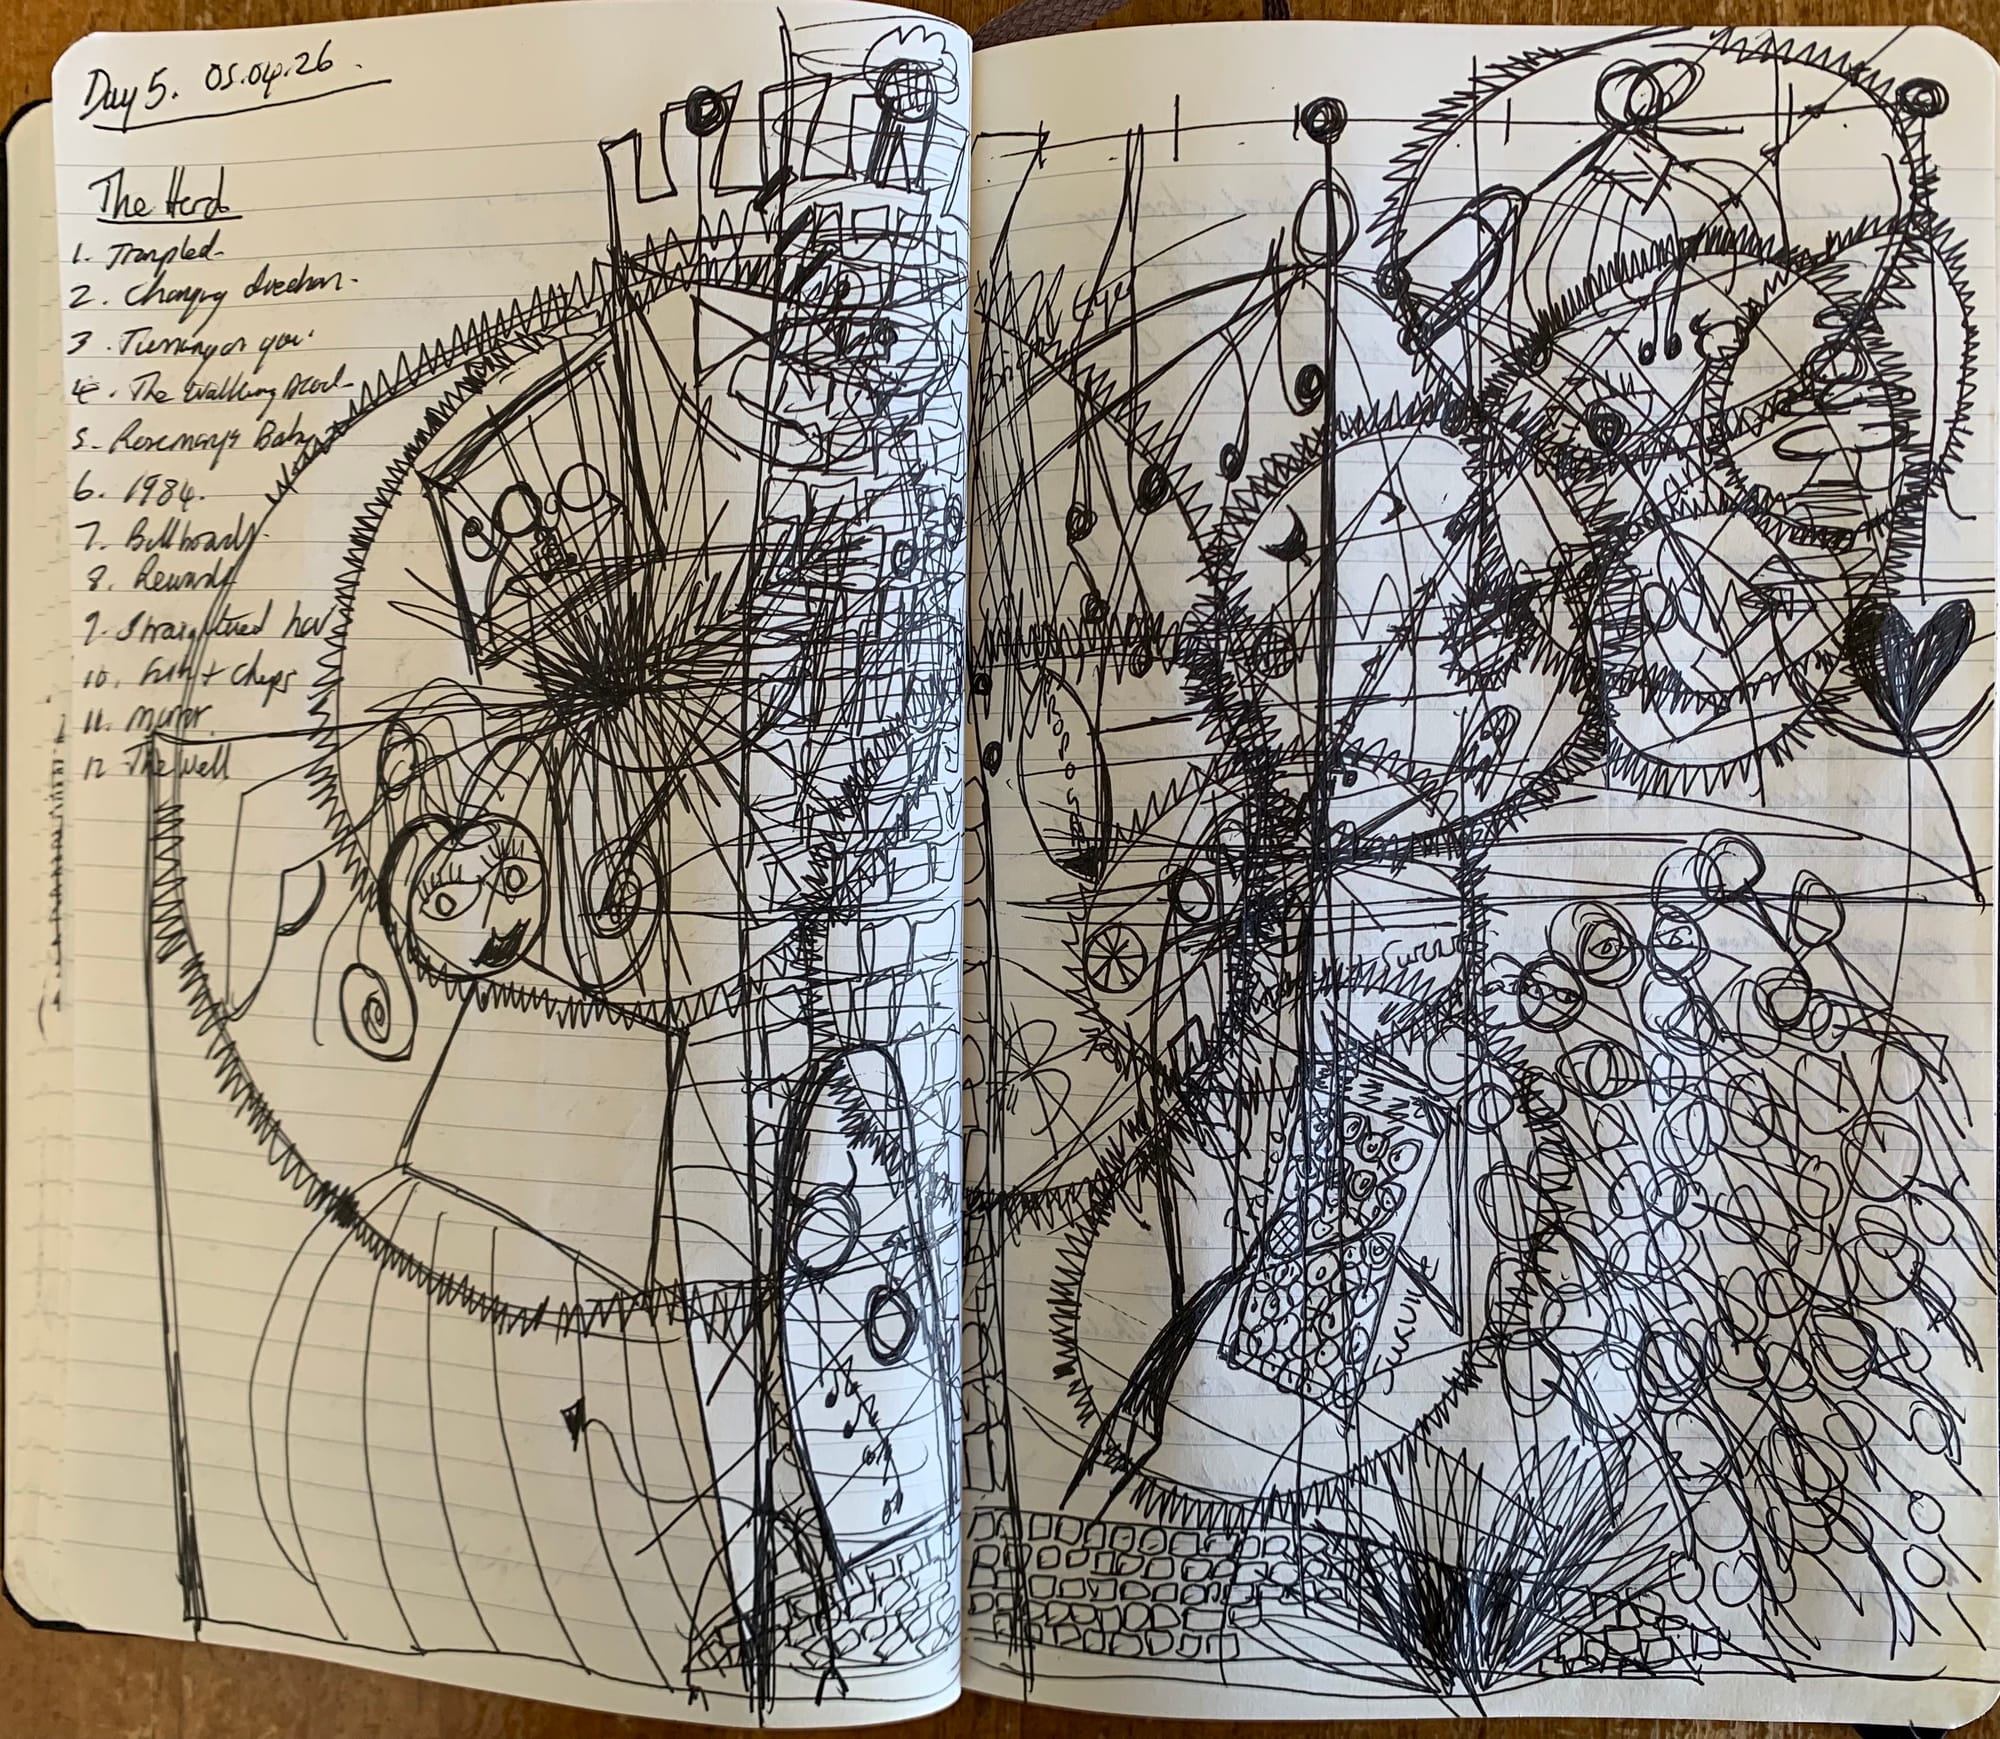 Day 5. 05.04.26.
The Herd
1. Trampled
2. Changing direction.
3. Turning on you.
4. The Walking Dead
5. Rosemary's Baby
6. 1984.
7. Billboards.
8. Rewards
9. Straightened hair
10. Fish + Chips
11. Mirror
12 The well